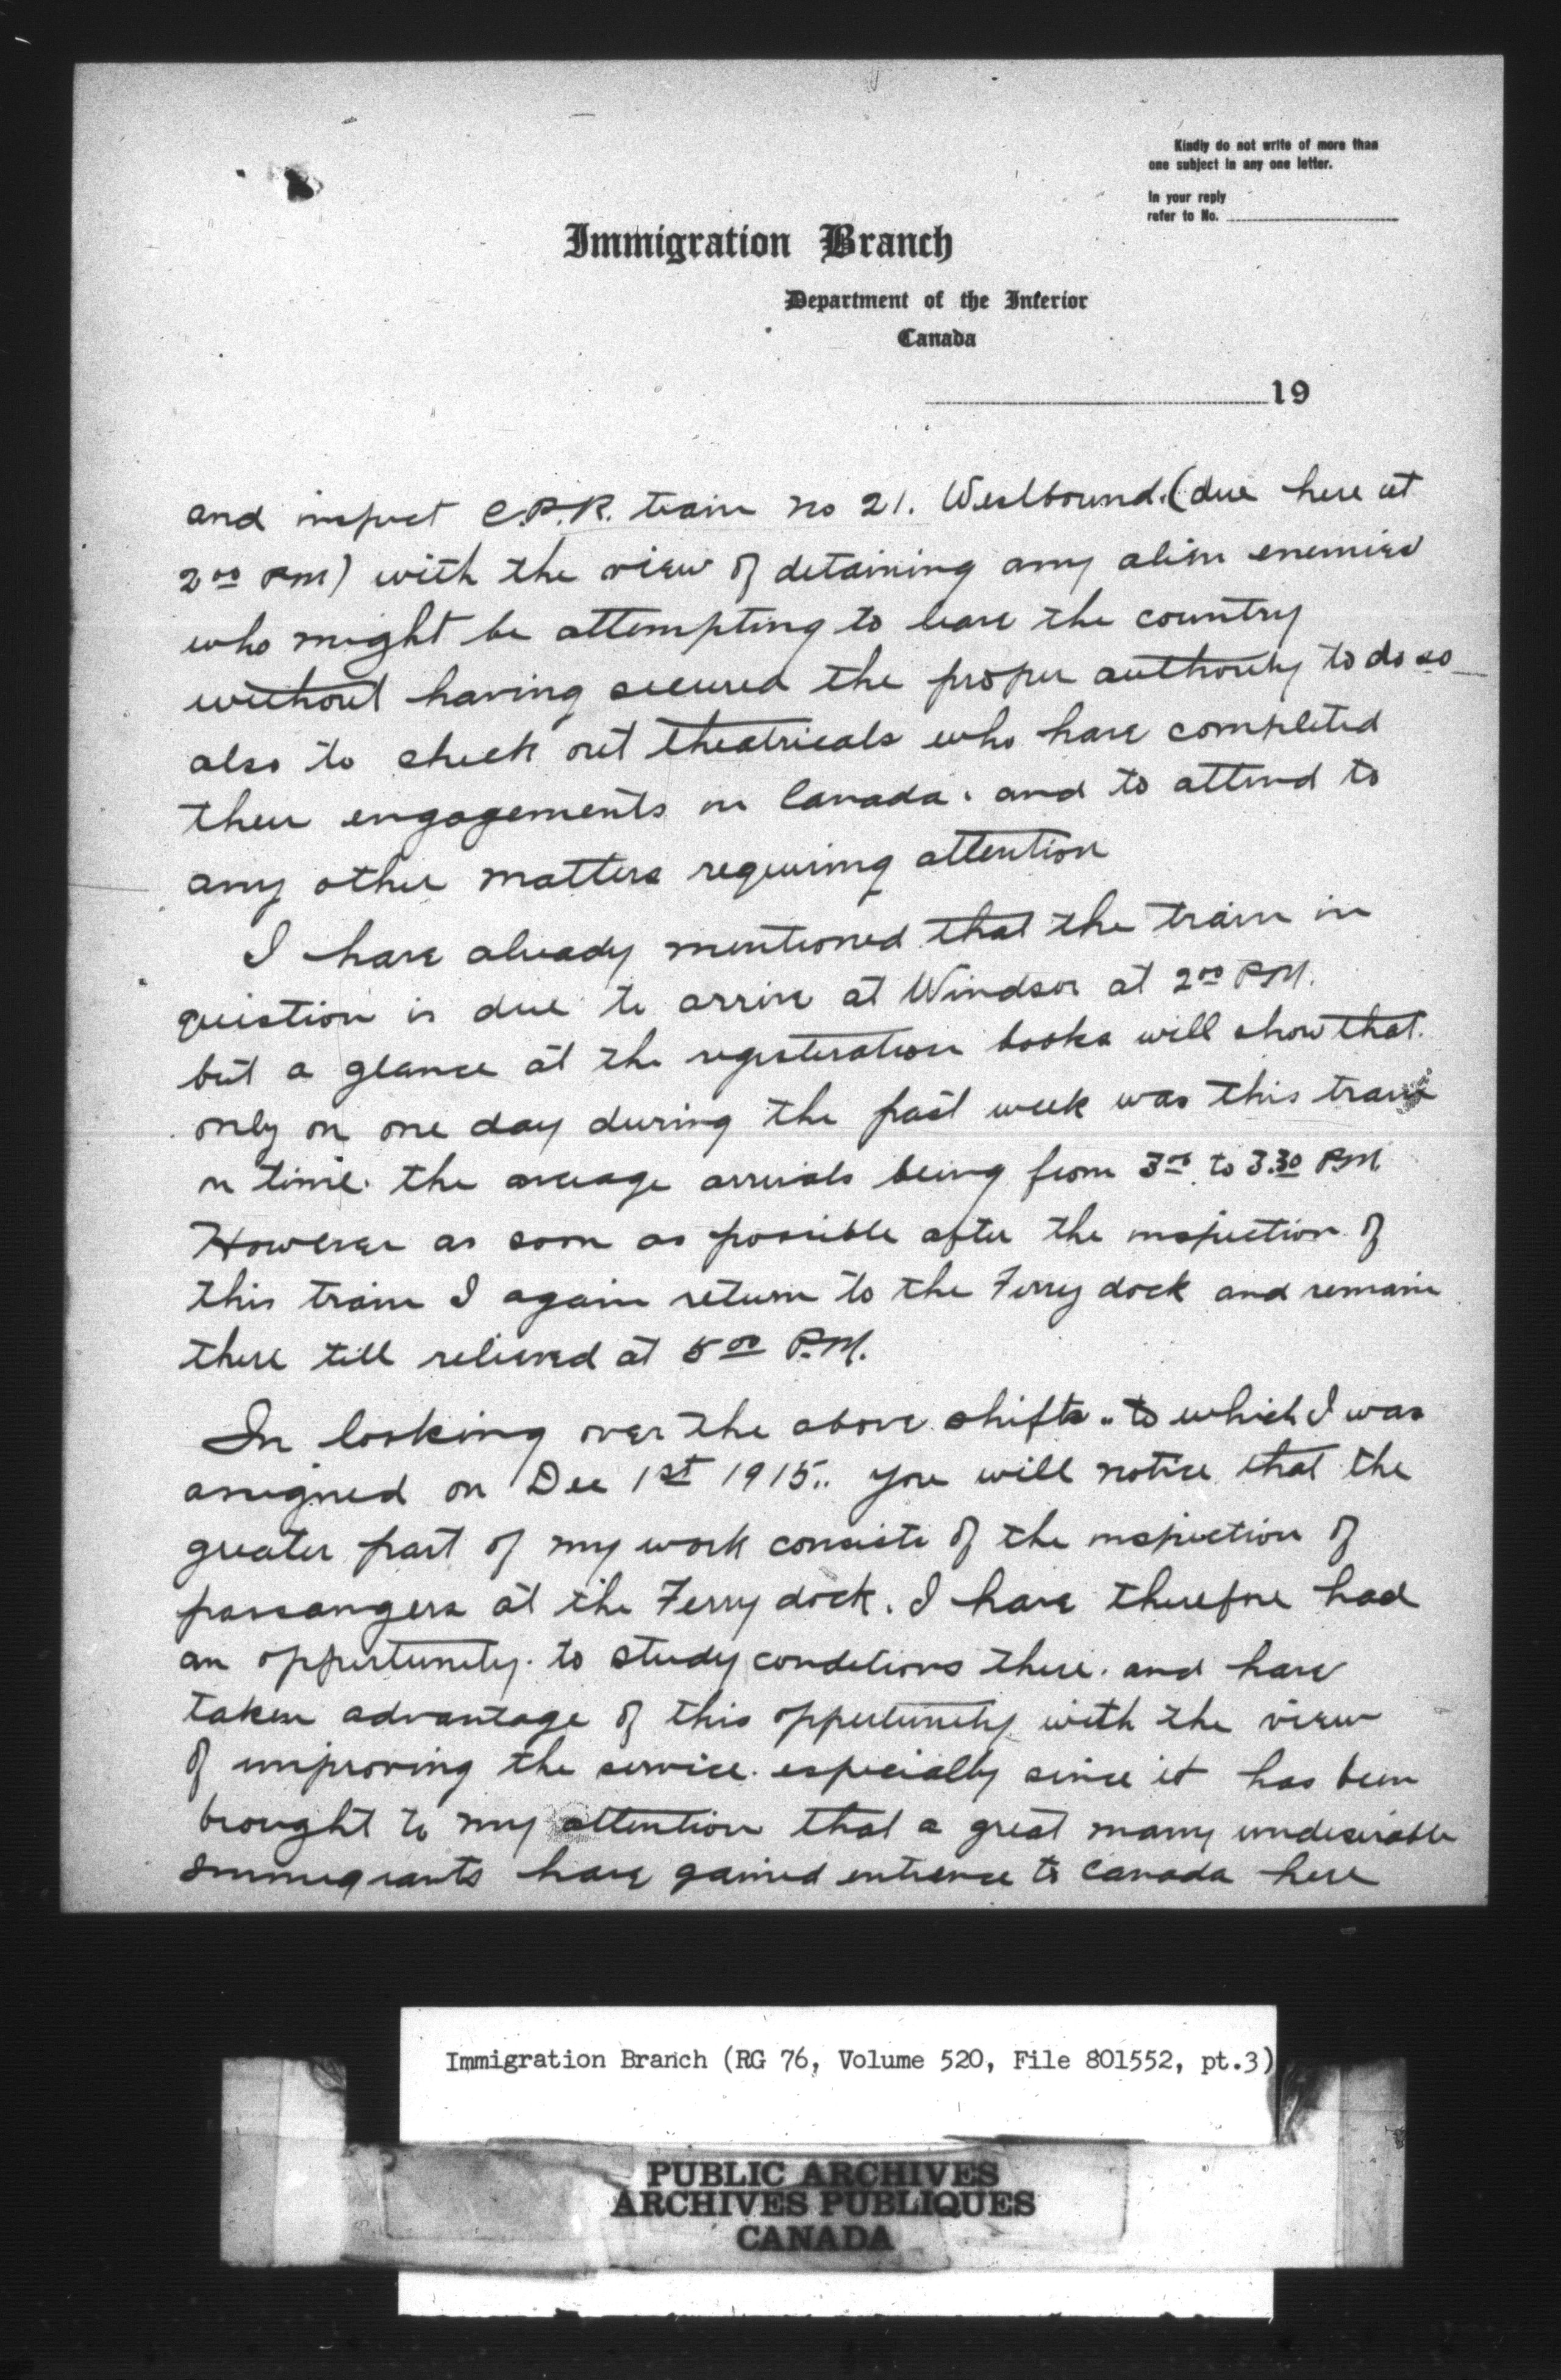 Kindly do not write of more than
one subject in any one letter.
In your reply
refer to No.
Immigration Branch
Department of the Interior
Canada
19
and inspect C.P.R. train no 21. Westbound. (due here at
2⁰⁰ PM) with the view of detaining any alien enemies
who might be attempting to leave the country
without having secured the proper authority to do so
also to check out theatricals who have completed
their engagements in Canada. and to attend to
any other matters requiring attention
I have already mentioned that the train in
question is due to arrive at Windsor at 2⁰⁰ PM.
but a glance at the registeration books will show that
only on one day during the past week was this train
on time. the average arrivals being from 3⁰⁰ to 3.30 PM
However as soon as possible after the inspection of
this train I again return to the Ferry dock and remain
there till relieved at 5⁰⁰ P.M.
In looking over the above shifts.. to which I was
assigned on Dec 1st 1915.. you will notice that the
greater part of my work consists of the inspection of
passangers at the Ferry dock. I have therefore had
an oppertunity. to study conditions there. and have
taken advantage of this oppertunity with the view
of improving the service. especially since it has been
brought to my attention that a great many undesirable
immigrants have gained entrence to Canada here
Immigration Branch (RG 76, Volume 520, File 801552, pt.3)
PUBLIC ARCHIVES
ARCHIVES PUBLIQUES
CANADA